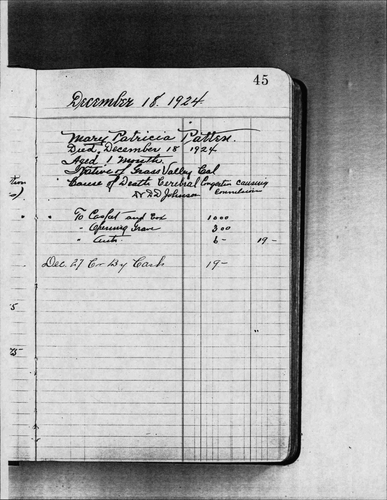 45
December 18. 1924
Mary Patricia Patten.
Died, December 18 1924
Aged 1 month
Native of Grass Valley Cal
Cause of Death Cerebral Congestion causing
Dr D Johnson Convulsions
To Casket and Box 10 00
" Opening Grave 3 00
" Auto. 6 - 19 -
Dec. 27 Cr By Cash 19 -
5
25